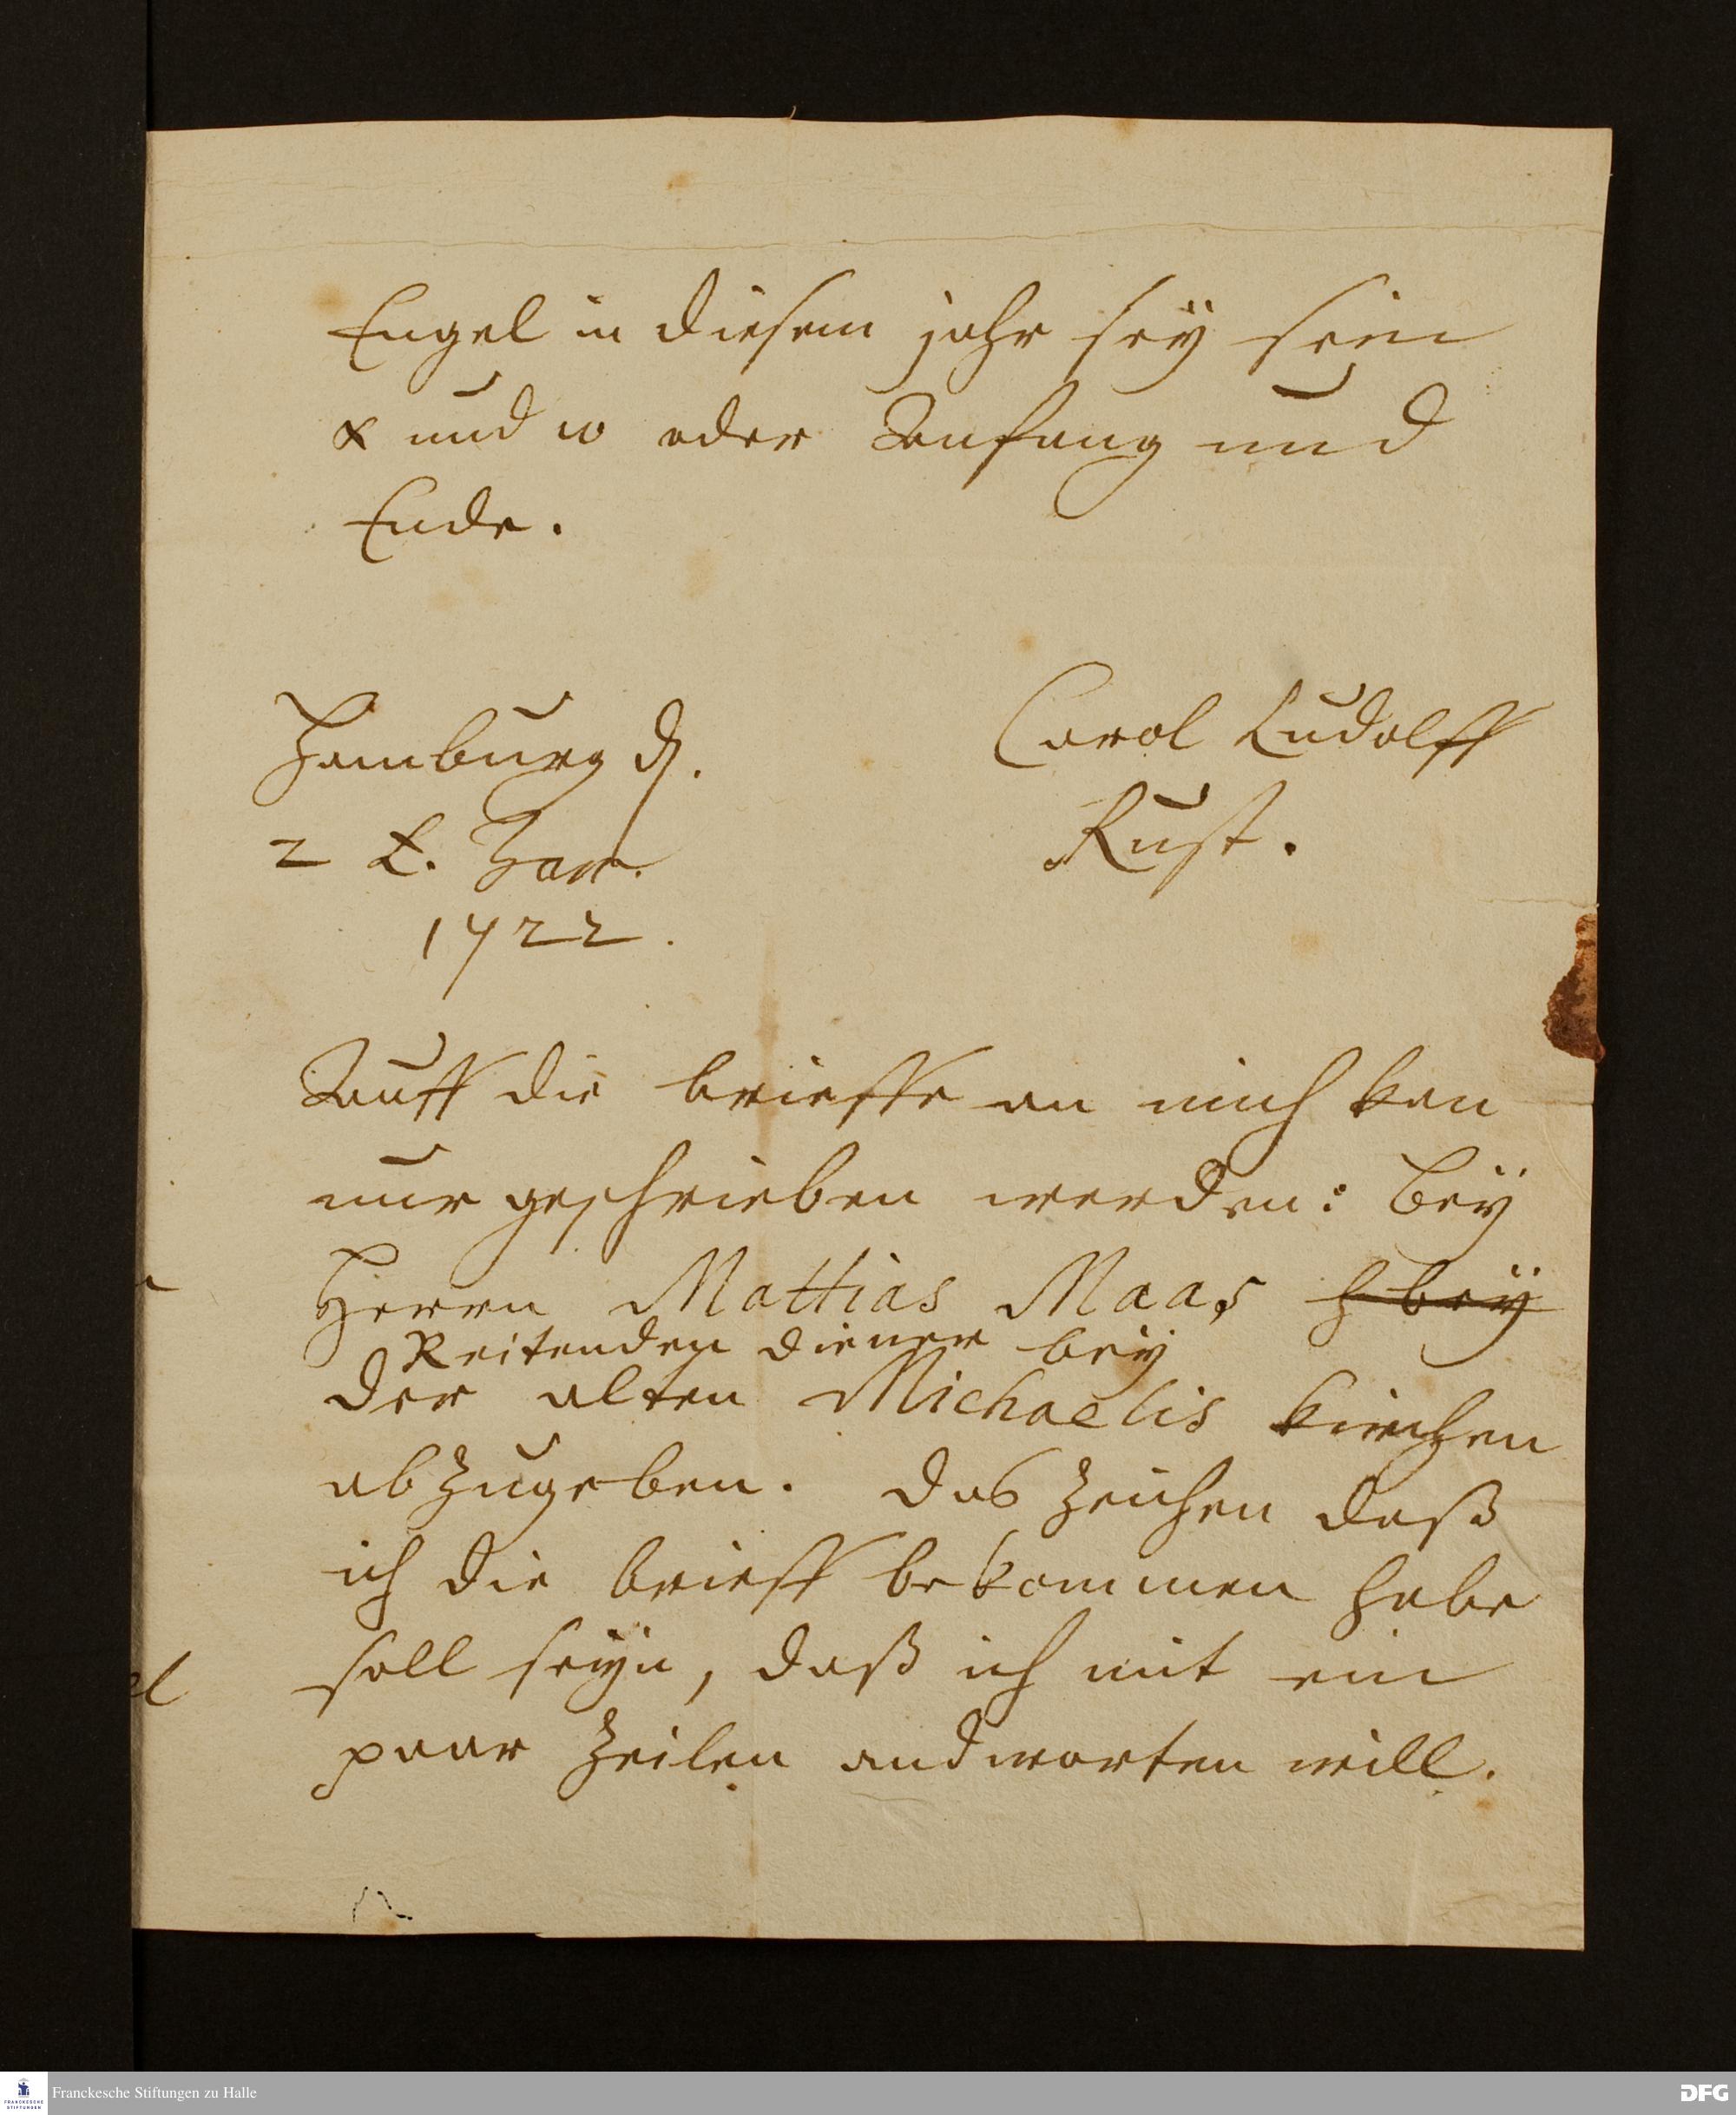 Engel in diesem jahr sey sein
α und ω oder Anfang und
Ende.
Hamburg d.
Carol Ludolff
2 t. Jan.
Rust.
1722.
Auff die brieffe an mich kan
nur geschrieben werden: bey
Herrn Mattias Maas bey
Reitenden diener bey
der alten Michaelis kirchen
abzugeben. das zeichen daß
ich die brieff bekommen habe
soll seyn, daß ich mit ein
paar zeilen andworten will.
Franckesche Stiftungen zu Halle
FRANCKESCHE
STIFTUNGEN
DFG